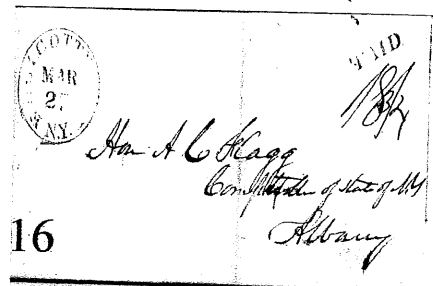 MAR
27
N.Y.
PAID
18¾
Hon A C Flagg
Comptroller of State of N.Y
Albany
16